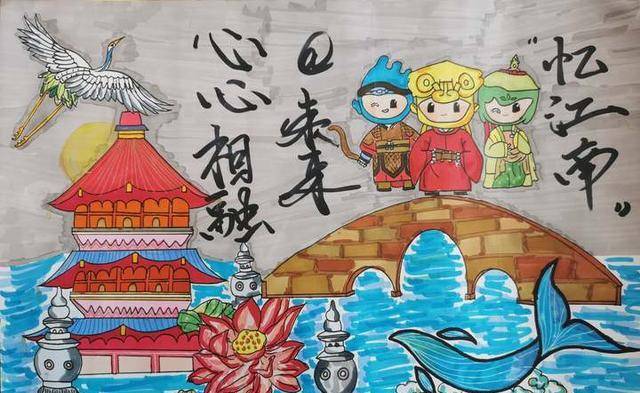 心心相融
@未来
"忆江南"